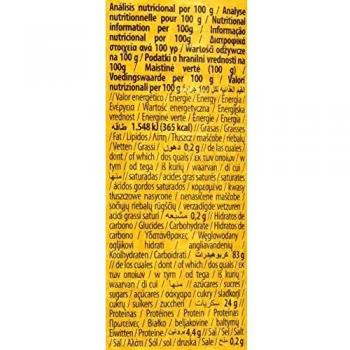 Análisis nutricional por 100 g / Analyse
nutritionnelle pour 100 g / Nutritional
information per 100g / Informação
nutricional por 100 g / Διατροφικά
στοιχεία ανά 100 γρ / Wartości odżywcze
na 100 g / Podatki o hranilni vrednosti na
100g / Maistinė vertė (100 g) /
Voedingswaarde per 100 g / Valori
nutrizionali per 100 g / القيم الغذائية لكل 100 جرام
// Valor energético / Énergie / Energy / Energia /
Ενέργεια / Wartość energetyczna / Energijska
vrednost / Energinė vertė / Energie / Energia /
طاقة 1.548 kJ (365 kcal) // Grasas / Graisses
/ Fat / Lípidos / Λίπη / Tłuszcz / maščobe / riebalų /
Vetten / Grassi / دهون 0,2 g // de las cuales / dont
/ of which / dos quais / εκ των οποίων / w
tym / od tega / iš kurių / waarvan / di cui /
منها // saturadas / acides gras saturés / saturates /
ácidos gordos saturados / κορεσμένα / kwasy
tłuszczowe nasycone / nenasičene maščobe /
sočiųjų riebalų rūgščių / verzadigde vetzuren /
acidi grassi saturi / مشبعة 0,2 g // Hidratos de
carbono / Glucides / Carbohydrate / Hidratos de
carbono / Υδατάνθρακες / Węglowodany /
ogljikovi hidrati / angliavandenių /
Koolhydraten / Carboidrati / كربوهيدرات 83 g
// de los cuales / dont / of which / dos quais / εκ
των οποίων / w tym / od tega / iš kurių /
waarvan / di cui / منها // azúcares / sucres
sugars / açúcares / σάκχαρα / cukry / sladkorji /
cukrų / suikers / zuccheri / سكريات 24 g //
Proteínas / Protéines / Protein / Proteínas /
Πρωτεΐνες / Białko / beljakovine / baltymų /
Eiwitten / Proteine / بروتين 4,4 g // Sal / Sel / Salt
/ Sal / Αλάτι / Sól / sol / druska / Zout / Sale / ملح 0,2 g